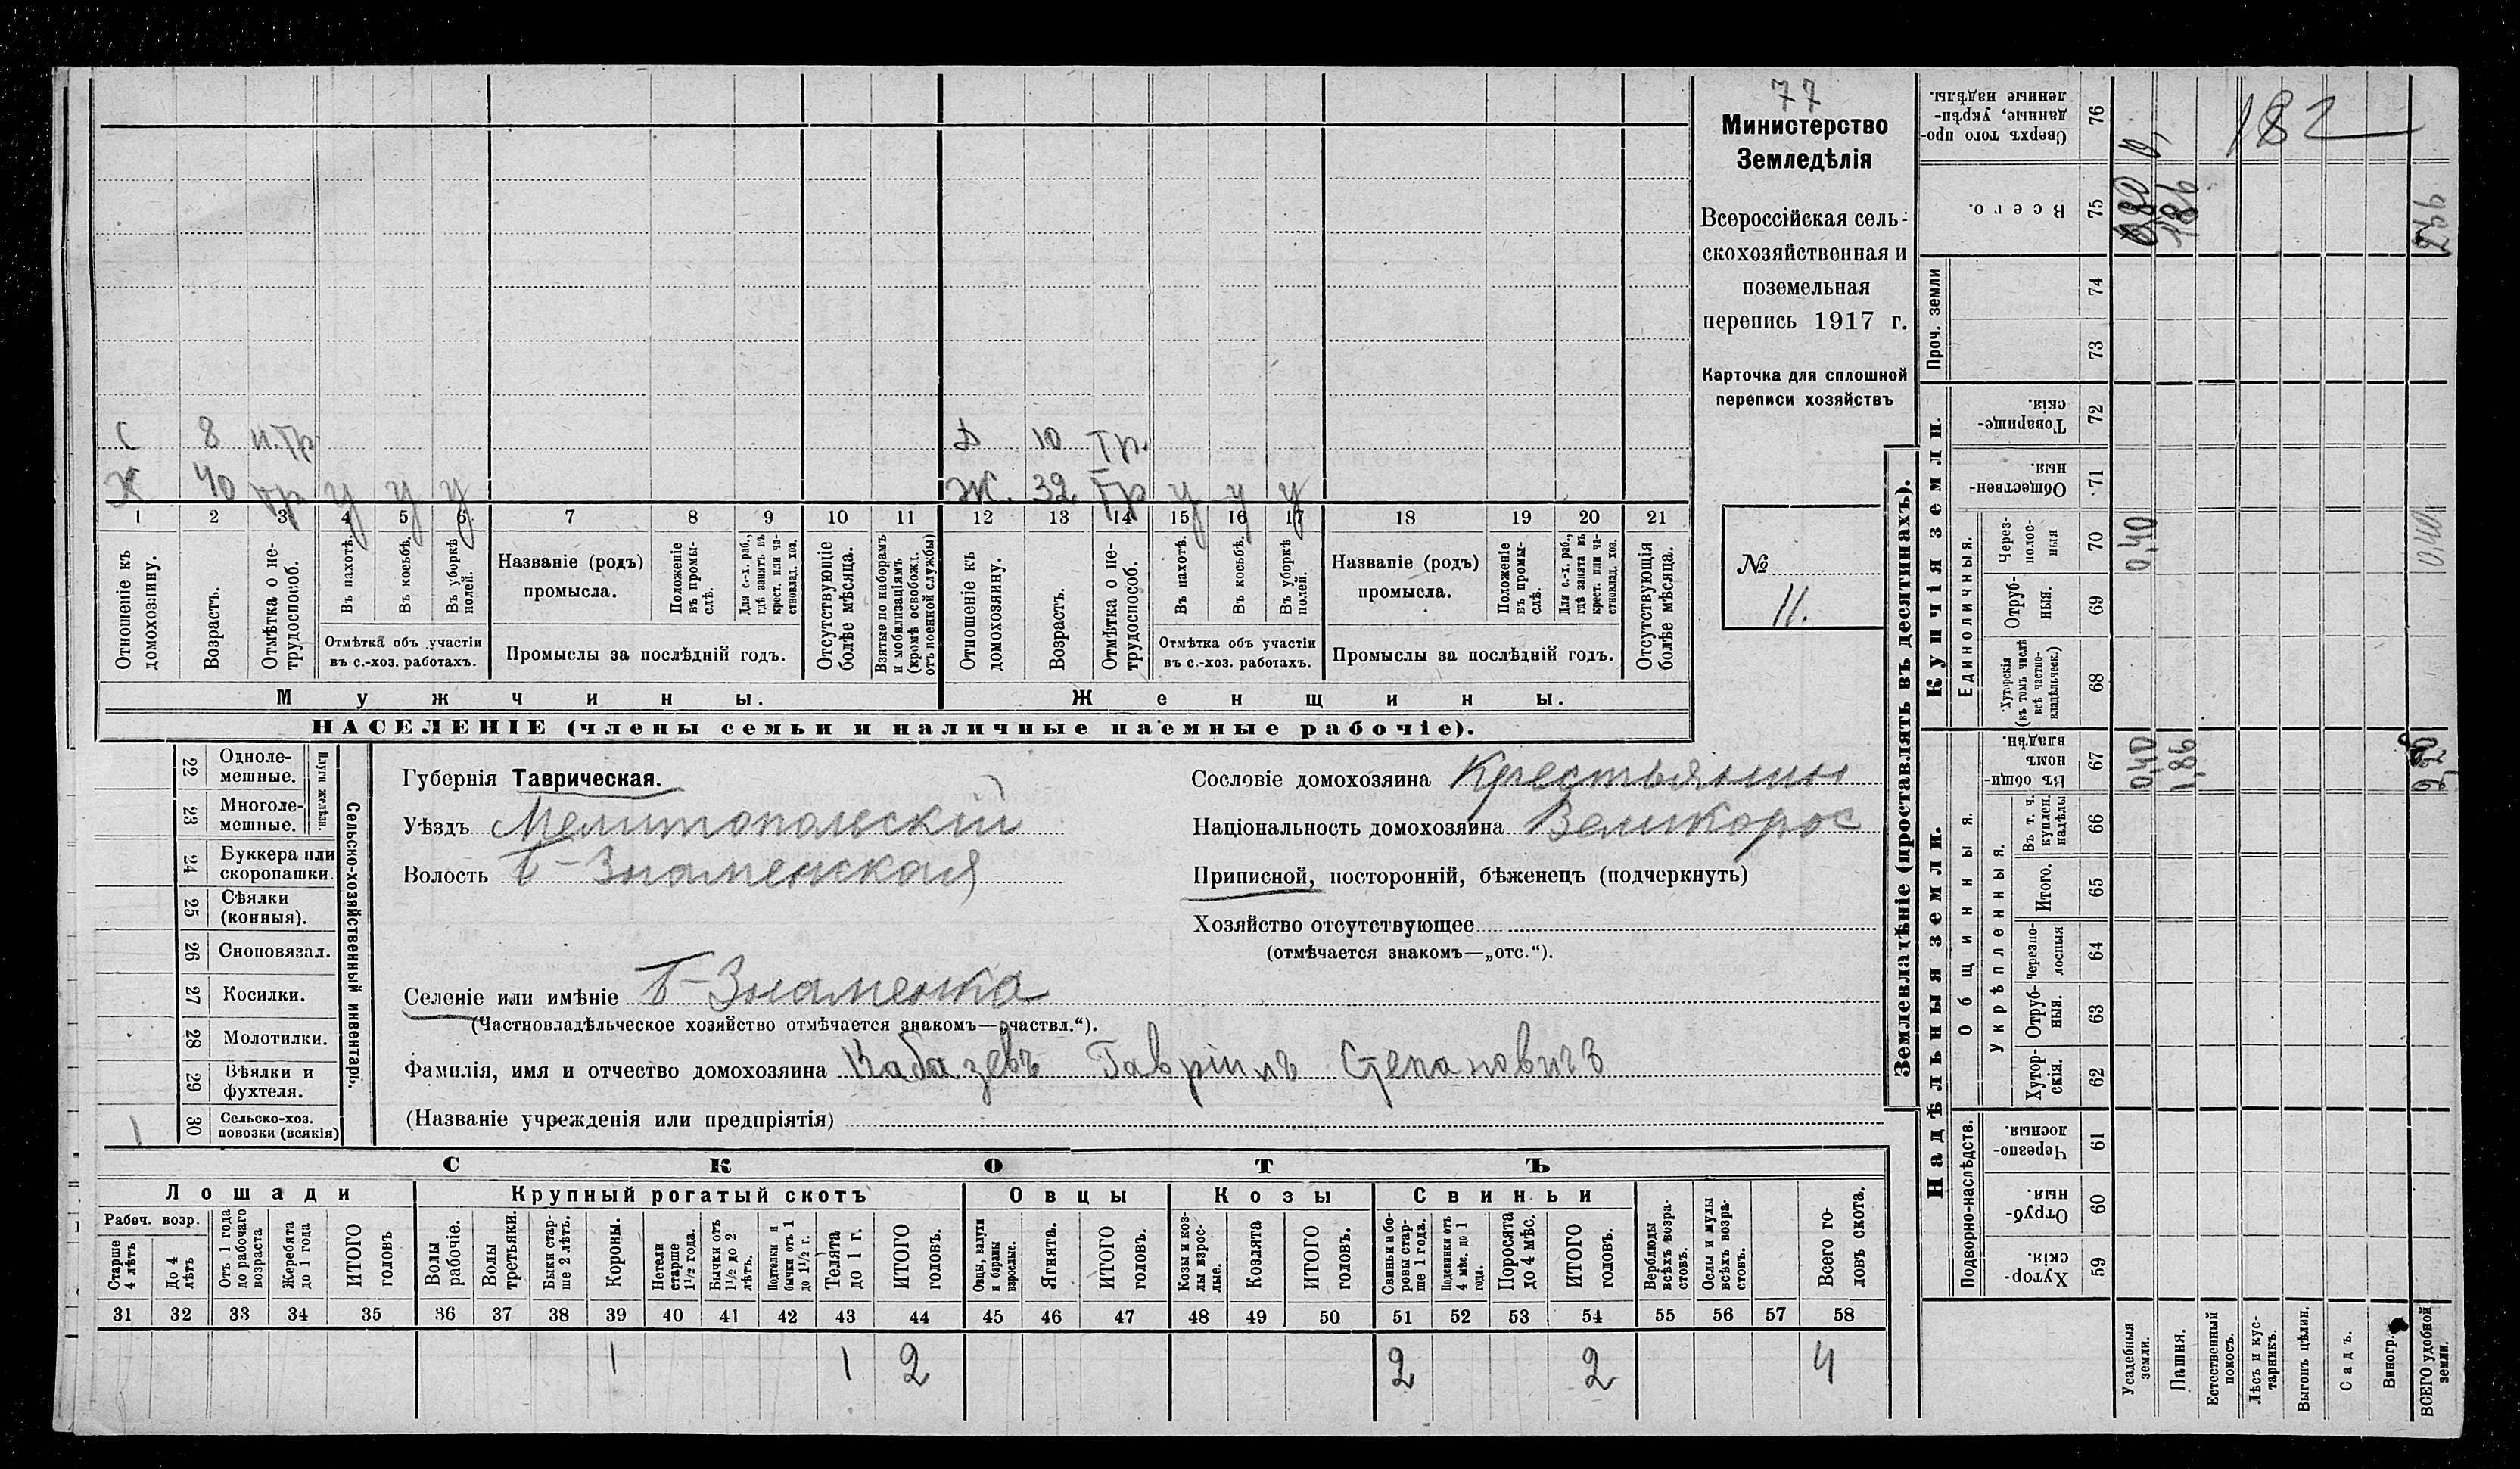 77
Министерство
Земледѣлія
Всероссійская сель-
скохозяйственная и
поземельная
перепись 1917 г.
Карточка для сплошной
переписи хозяйствъ
№
11.
С 8 н.тр Д 10 тр.
Х 40 тр у у у Ж. 32 тр у у у
1 2 3 4 5 6 7 8 9 10 11 12 13 14 15 16 17 18 19 20 21
Отношеніе къ домохозяину.
Возрастъ.
Отмѣтка о не-трудоспособ.
Въ пахотѣ.
Въ косьбѣ.
Въ уборкѣ полей.
Отмѣтка объ участіи
въ с.-хоз. работахъ.
Названіе (родъ)
промысла.
Положеніе въ промы-слѣ.
Для с.-х. раб., гдѣ занятъ въ крест. или ча-стновлад. хоз.
Промыслы за послѣдній годъ.
Отсутствующіе болѣе мѣсяца.
Взятые по наборамъ и мобилизаціямъ (кромѣ освобожд. отъ военной службы)
Отношеніе къ домохозяину.
Возрастъ.
Отмѣтка о не-трудоспособ.
Въ пахотѣ.
Въ косьбѣ.
Въ уборкѣ полей.
Отмѣтка объ участіи
въ с.-хоз. работахъ.
Названіе (родъ)
промысла.
Положеніе въ промы-слѣ.
Для с.-х. раб., гдѣ занята въ крест. или ча-стновлад. хоз.
Промыслы за послѣдній годъ.
Отсутствующія болѣе мѣсяца.
Мужчины. Женщины.
НАСЕЛЕНІЕ (члены семьи и наличные наемные рабочіе).
22 Одноле-мешные.
23 Многоле-мешные.
Плуги желѣзн.
24 Буккера или скоропашки.
25 Сѣялки (конныя).
26 Сноповязал.
27 Косилки.
28 Молотилки.
29 Вѣялки и фухтеля.
1 30 Сельско-хоз. повозки (всякія)
Сельско-хозяйственный инвентарь.
Губернія Таврическая.
Уѣздъ Мелитопольскій
Волость Б-Знаменская
Сословіе домохозяина Крестьянин
Національность домохозяина Великорос
Приписной, посторонній, бѣженецъ (подчеркнуть)
Хозяйство отсутствующее
(отмѣчается знакомъ—„отс.“).
Селеніе или имѣніе Б-Знаменка
(Частновладѣльческое хозяйство отмѣчается знакомъ—„частвл.“).
Фамилія, имя и отчество домохозяина Кабазевъ Гавріилъ Степановичъ
(Названіе учрежденія или предпріятія)
СКОТЪ
Лошади Крупный рогатый скотъ Овцы Козы Свиньи
Рабоч. возр.
Старше 4 лѣтъ
До 4 лѣтъ
Отъ 1 года до рабочаго возраста
Жеребята до 1 года
ИТОГО головъ
Волы рабочіе.
Волы третьяки.
Быки стар-ше 2 лѣтъ.
Коровы.
Нетели старше 1½ года.
Бычки отъ 1½ до 2 лѣтъ.
Подтелки и бычки отъ 1 до 1½ г.
Телята до 1 г.
ИТОГО головъ.
Овцы, валухи и бараны взрослые.
Ягнята.
ИТОГО головъ.
Козы и коз-лы взрос-лые.
Козлята
ИТОГО головъ.
Свиньи и бо-ровы стар-ше 1 года.
Подсвинки отъ 4 мѣс. до 1 года.
Поросята до 4 мѣс.
ИТОГО головъ.
Верблюды всѣхъ возра-стовъ.
Ослы и мулы всѣхъ возра-стовъ.
Всего го-ловъ скота.
31 32 33 34 35 36 37 38 39 40 41 42 43 44 45 46 47 48 49 50 51 52 53 54 55 56 57 58
1 1 2 2 2 4
Землевладѣніе (проставлять въ десятинахъ).
Надѣльныя земли.
Купчія земли.
Проч. земли
Подворно-наслѣдств.
Общинныя.
Укрѣпленныя.
Единоличныя.
Сверхъ того про-данные, укрѣп-ленные надѣлы. 76 182
Всего. 75 1,86
74
73
Товарище-скія. 72
Обществен-ныя. 71
Через-полос-ныя 70 0,40 0,40
Отруб-ныя. 69
Хуторскія (въ томъ числѣ всѣ частно-владѣльческ.) 68
Въ общин-номъ владѣн. 67 0,40 1,86
Въ т. ч. куплен. надѣлы 66
Итого. 65
Черезпо-лосныя 64
Отруб-ныя. 63
Хутор-скія. 62
Черезпо-лосныя 61
Отруб-ныя. 60
Хутор-скія. 59
Усадебныя земли.
Пашня.
Естественный покосъ.
Лѣсъ и кус-тарникъ.
Выгонъ цѣлин.
Садъ.
Виногр.
ВСЕГО удобной земли.